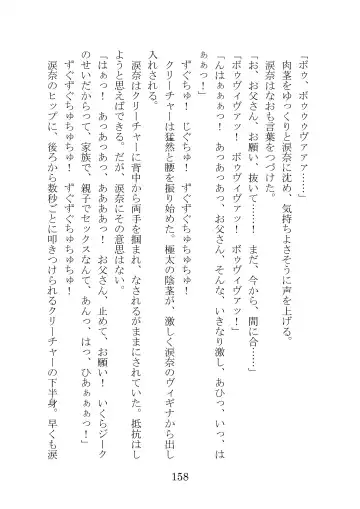 「ボゥ、ボゥゥゥヴァアア……」
肉茎をゆっくりと涙奈に沈め、気持ちよさそうに声を上げる。
涙奈はなおも言葉をつづけた。
「お、お父さん、お願い、抜いて……！　まだ、今から、間に合……」
「ボゥヴィヴァッ！　ボゥヴィヴァッ！　ボゥヴィヴァッ！」
「んはぁぁぁっ！　あっあっあっ、お父さん、そんな、いきなり激し、あひっ、いっ、は
ぁぁっ！」
ずぐちゅ！　じぐちゅ！　ずぐずぐちゅちゅちゅ！
クリーチャーは猛然と腰を振り始めた。極太の陰茎が、激しく涙奈のヴィギナから出し
入れされる。
涙奈はクリーチャーに背中から両手を掴まれ、なされるがままにされていた。抵抗はし
ようと思えばできる。だが、涙奈にその意思はない。
「はぁっ！　あっあっあっ、ああああっ！　お父さん、止めて、お願い！　いくらジーク
のせいだからって、家族で、親子でセックスなんて、あんっ、はっ、ひあぁぁぁっ！」
ずぐずぐちゅちゅちゅ！　ずぐずぐちゅちゅちゅ！
涙奈のヒップに、後ろから数秒ごとに叩きつけられるクリーチャーの下半身。早くも涙
158